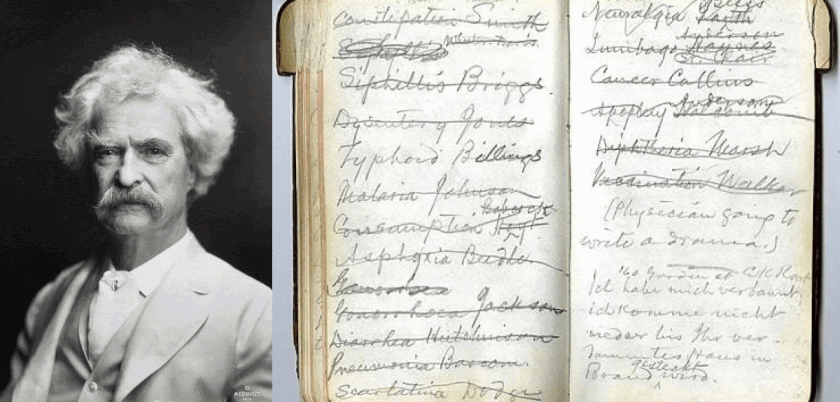 Constipation Smith
Whooton Davis
Siphillis Briggs.
Dysentery Jones
Typhoid Billings
Malaria Johnson
Babcock
Consumption Hoyt.
Asphyxia Beedle
Gonorrhoea Jackson
Diarrhea Hutchinson
Pneumonia Barcom.
Scarlatina Dodge
Neuralgia Faith
Anderson
Lumbago Haynes
St. Clair
Cancer Collins
Anderson
Apoplexy Holcomb
Diphtheria Marsh
Vaccination Walker
(Physician going to
write a drama.)
Ich habe mich verbaunt;
ich komme nicht
weder bis Ihr ver-
Haus in
gesteckt
Brand wird.